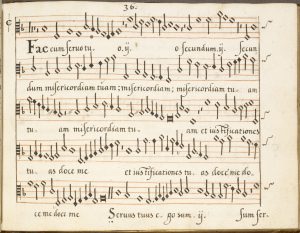 36.
Fac cum seruo tu o. ij. o secundum. ij. secun
dum misericordiam tuam; misericordiam tu. am
tu. am misericordiam tu. am et iustificationes
tu. as doce me et iustificationes tu. as doce me do.
ce me doce me Seruus tuus e. go sum. ij. sum ser.